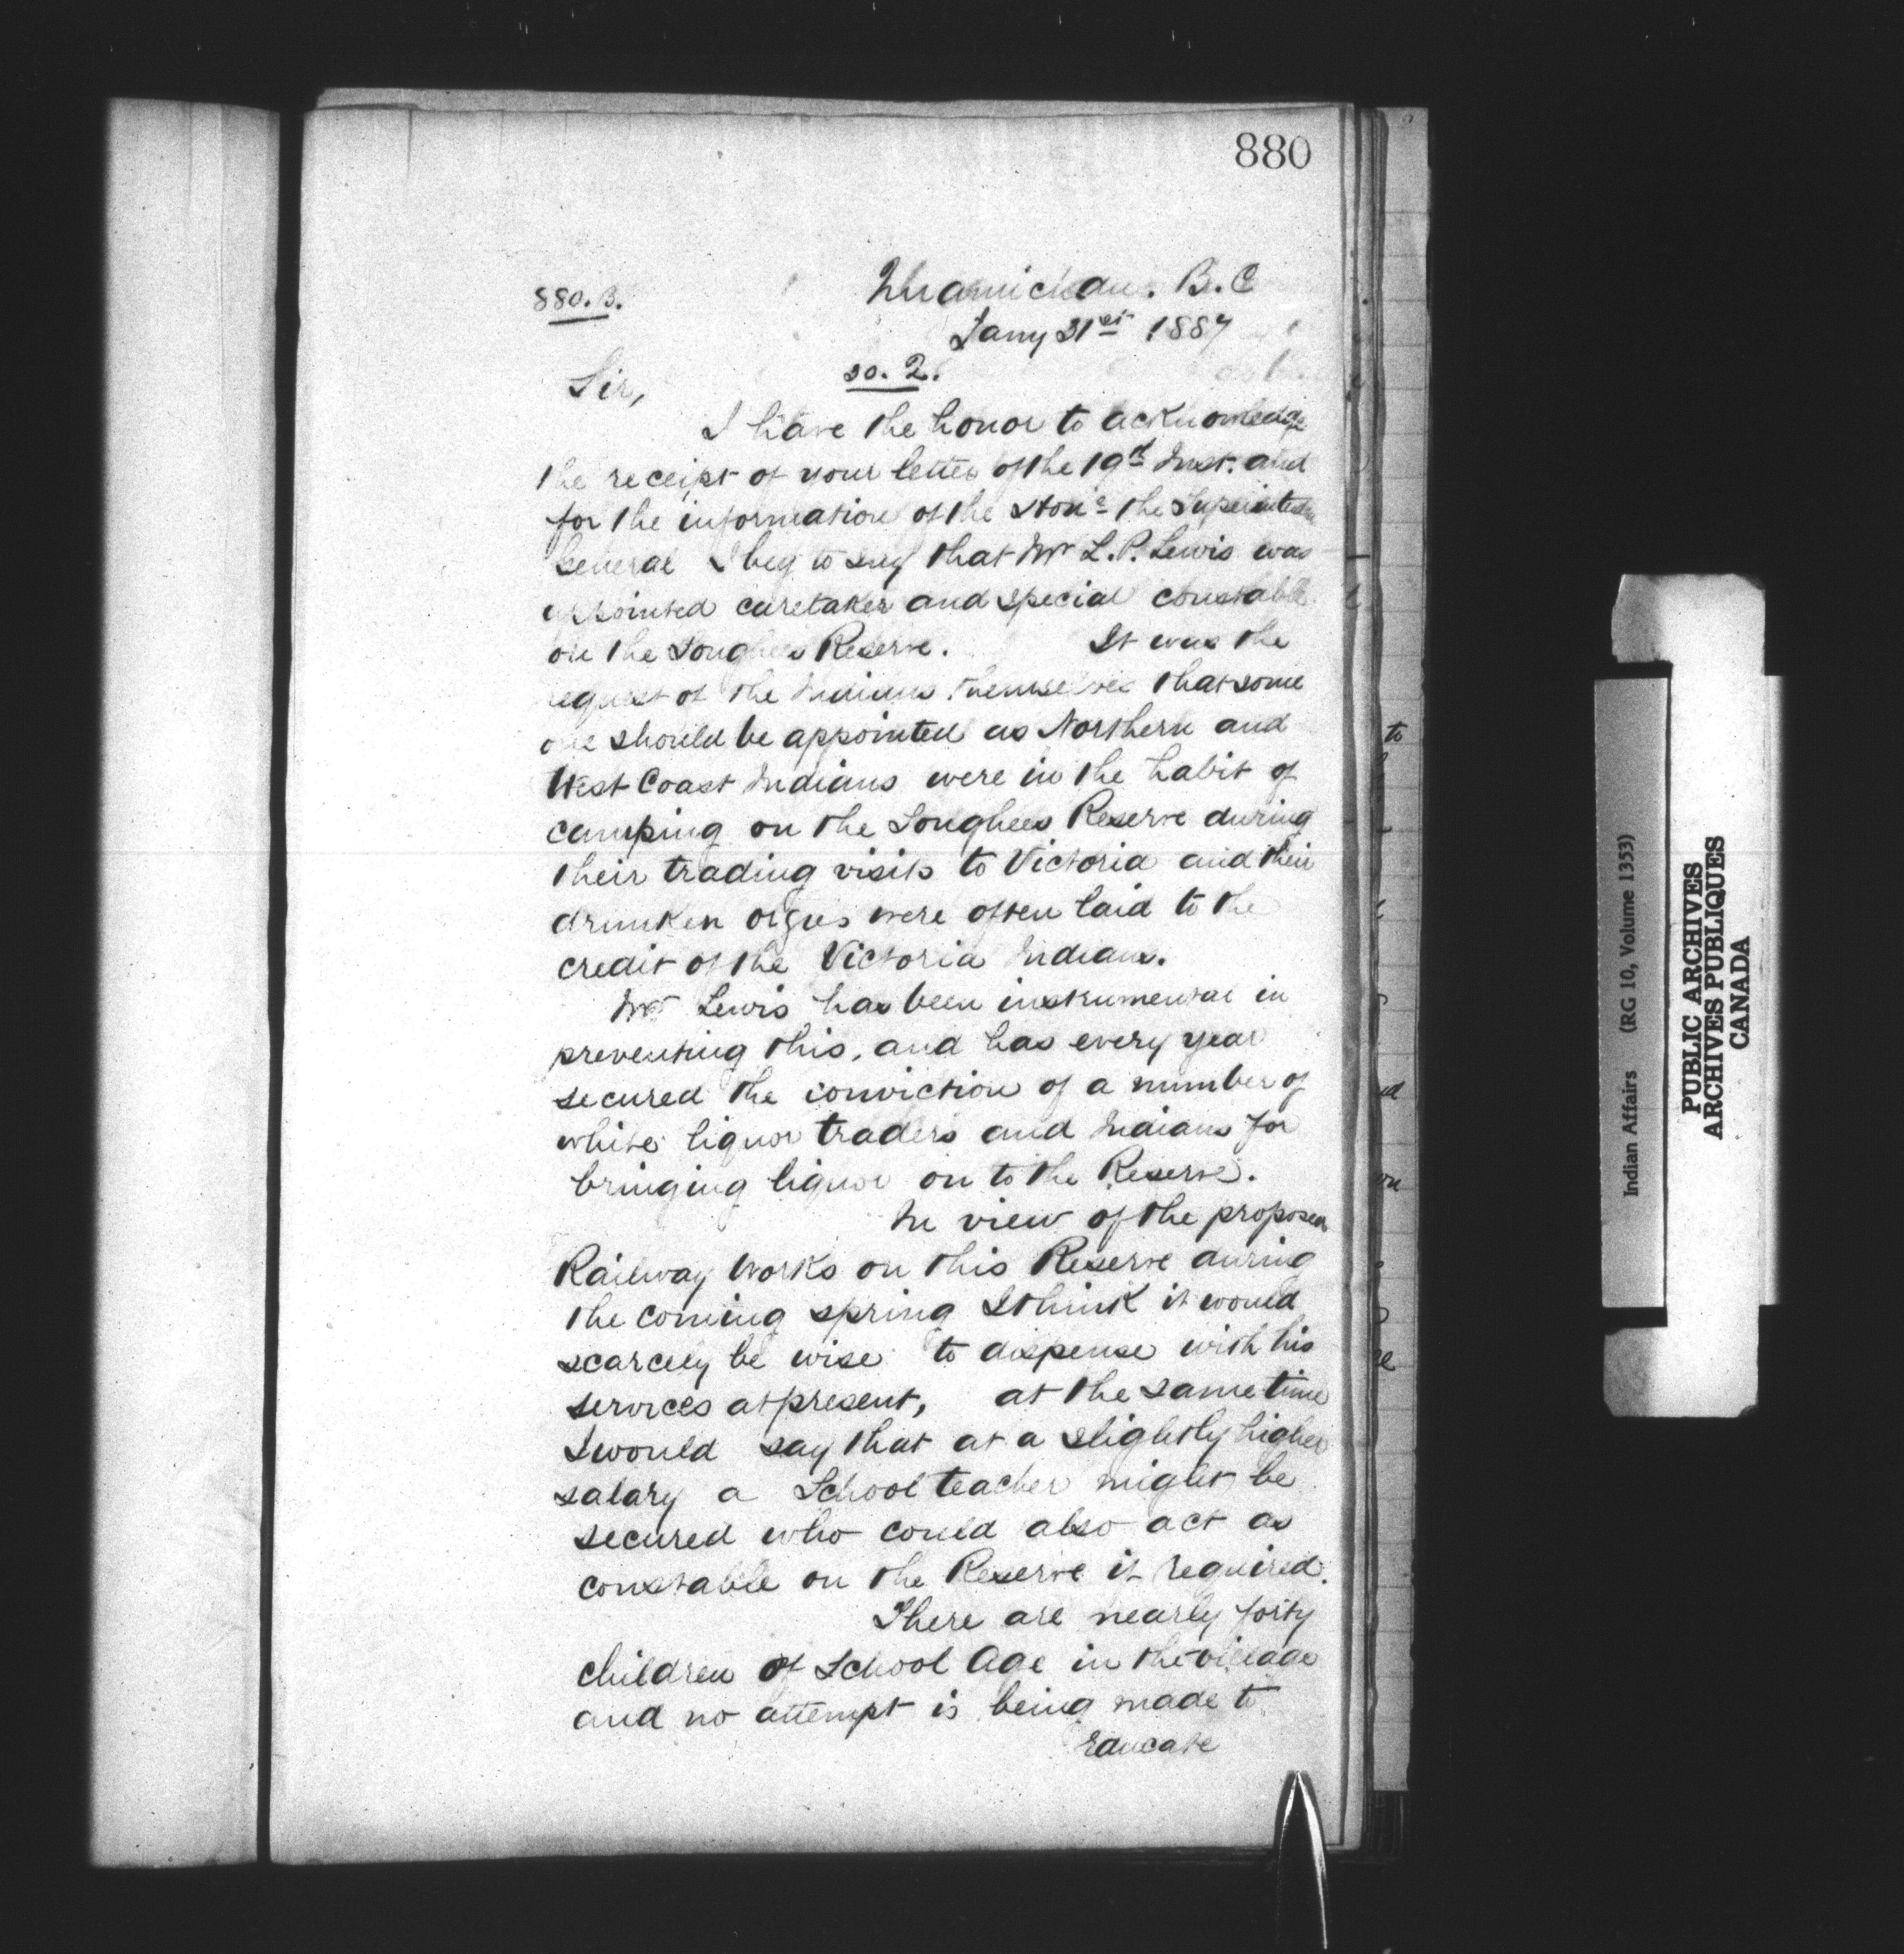 880
880. B.
Quamichan. B. C
Jany 31st 1887
so. 2.
Sir,
I have the honor to acknowledge
the receipt of your letter of the 19th Inst. and
for the information of the Hone the Superintdn
General I beg to say that Mr L. P. Lewis was
appointed caretaker and special constable
on the Songhees Reserve. It was the
request of the Indians themselves that some
one should be appointed as Northern and
West Coast Indians were in the habit of
camping on the Songhees Reserve during
their trading visits to Victoria and their
drunken orgies were often laid to the
credit of the Victoria Indians.
Mr Lewis has been instrumental in
preventing this, and has every year
secured the conviction of a number of
white liquor traders and Indians for
bringing liquor on to the Reserve.
In view of the proposed
Railway Works on this Reserve during
the coming spring I think it would
scarcely be wise to dispense with his
services at present, at the same time
I would say that at a slightly higher
salary a School teacher might be
secured who could also act as
constable on the Reserve if required.
There are nearly forty
children of School Age in the village
and no attempt is being made to
Educate
to
Indian Affairs (RG 10, Volume 1353)
PUBLIC ARCHIVES
ARCHIVES PUBLIQUES
CANADA